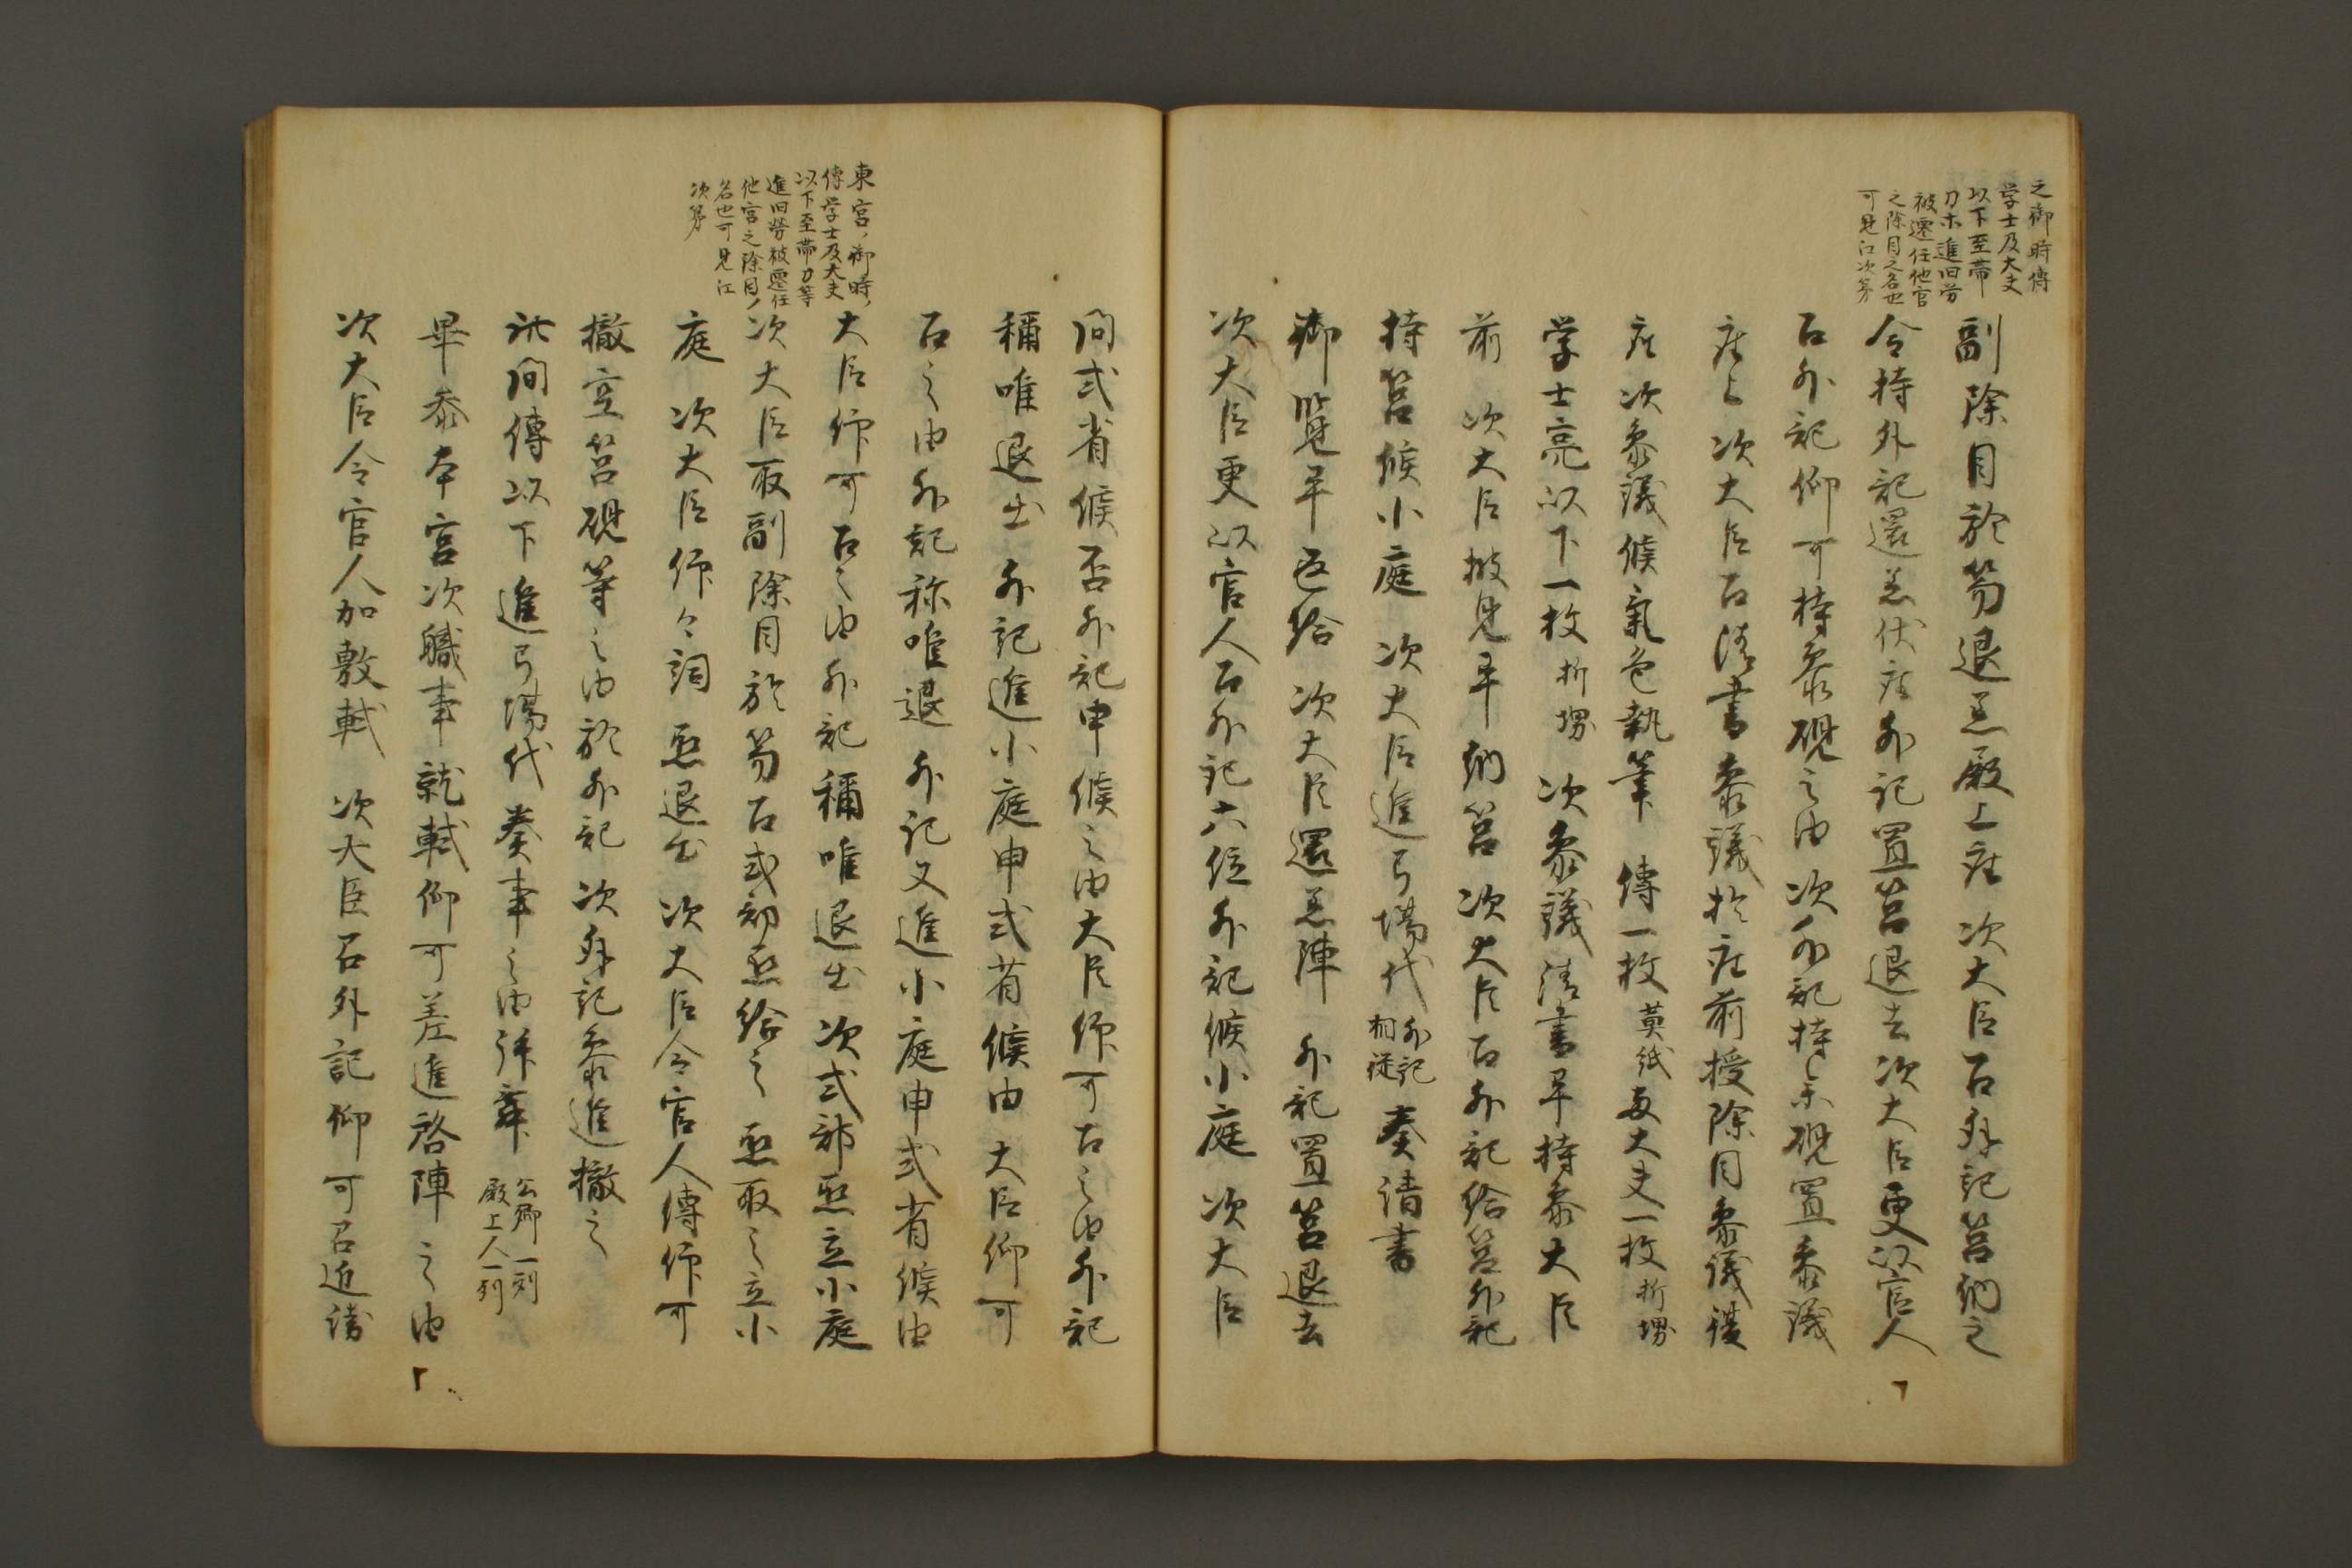 之御時傅
学士及大夫
以下至帯
刀木進旧労
被遷任他官
之除目之名也
可見江次第
副除目於笏退着殿上座 次大臣召外記筥納之
令持外記還着伏座外記置筥退去次大臣更以官人
召外記仰可持参硯之由 次外記持参硯置参議
座上 次大臣召清書参議於座前授除目参議復
座 次参議候気色執筆 傅一枚 黄紙 大夫一枚 折堺
学士亮以下一枚 折堺 次参議清書畢持参大臣
前 次大臣披見畢納筥 次大臣召外記給筥外記
持筥候小庭 次大臣進弓場代 外記
相従 奏清書
御覧畢返給 次大臣還着陣 外記置筥退去
次大臣更以官人召外記六位外記候小庭 次大臣
問式省候否外記申候之由大臣仰可召之由外記
稱唯退出 外記進小庭申式省候由 大臣仰可
召之由外記称唯退 外記又進小庭申式省候由
大臣仰可召之由外記稱唯退出 次式部丞立小庭
東宮ノ御時ノ
傅学士及大夫
以下至帯刀等
進旧労被遷任
他官之除目ノ
名也可見江
次第
次大臣取副除目於笏召式部丞給之 丞取之立小
庭 次大臣仰々詞 丞退出 次大臣令官人傳仰可
撤空筥硯等之由於外記 次外記参進撤之
此間傅以下進弓場代奏事之由拝舞 公卿一列
殿上人一列
畢参本宮次職事就軾仰可差進啓陣之由
次大臣令官人加敷軾 次大臣召外記仰可召近衛